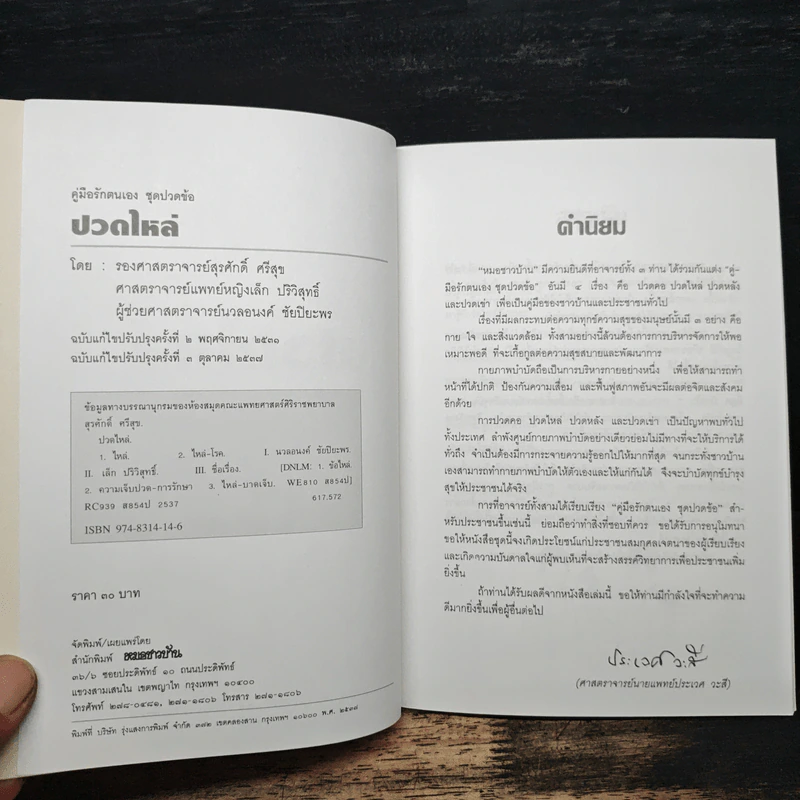 คู่มือรักตนเอง ชุดปวดข้อ
ปวดไหล่
โดย : รองศาสตราจารย์สุรศักดิ์ ศรีสุข
ศาสตราจารย์แพทย์หญิงเล็ก ปริวิสุทธิ์
ผู้ช่วยศาสตราจารย์นวลอนงค์ ชัยปิยะพร
ฉบับแก้ไขปรับปรุงครั้งที่ ๒ พฤศจิกายน ๒๕๓๑
ฉบับแก้ไขปรับปรุงครั้งที่ ๓ ตุลาคม ๒๕๓๗
ข้อมูลทางบรรณานุกรมของห้องสมุดคณะแพทยศาสตร์ศิริราชพยาบาล
สุรศักดิ์ ศรีสุข.
ปวดไหล่.
1. ไหล่. 2. ไหล่-โรค. I. นวลอนงค์ ชัยปิยะพร.
II. เล็ก ปริวิสุทธิ์. III. ชื่อเรื่อง. [DNLM: 1. ข้อไหล่.
2. ความเจ็บปวด-การรักษา 3. ไหล่-บาดเจ็บ. WE810 ส854ป]
RC939 ส854ป 2537 617.572
ISBN 974-8314-14-6
ราคา ๓๐ บาท
จัดพิมพ์/เผยแพร่โดย
สำนักพิมพ์ หมอชาวบ้าน
๓๖/๖ ซอยประดิพัทธ์ ๑๐ ถนนประดิพัทธ์
แขวงสามเสนใน เขตพญาไท กรุงเทพฯ ๑๐๔๐๐
โทรศัพท์ ๒๗๘-๐๔๘๑, ๒๗๑-๑๘๐๖ โทรสาร ๒๗๑-๑๘๐๖
พิมพ์ที่ บริษัท รุ่งแสงการพิมพ์ จำกัด ๓๗๒ เขตคลองสาน กรุงเทพฯ ๑๐๖๐๐ พ.ศ. ๒๕๓๗
คำนิยม
"หมอชาวบ้าน" มีความยินดีที่อาจารย์ทั้ง ๓ ท่าน ได้ร่วมกันแต่ง "คู่-
มือรักตนเอง ชุดปวดข้อ" อันมี ๔ เรื่อง คือ ปวดคอ ปวดไหล่ ปวดหลัง
และปวดเข่า เพื่อเป็นคู่มือของชาวบ้านและประชาชนทั่วไป
เรื่องที่มีผลกระทบต่อความทุกข์ความสุขของมนุษย์นั้นมี ๓ อย่าง คือ
กาย ใจ และสิ่งแวดล้อม ทั้งสามอย่างนี้ล้วนต้องการการบริหารจัดการให้พอ
เหมาะพอดี ที่จะเกื้อกูลต่อความสุขสบายและพัฒนาการ
กายภาพบำบัดถือเป็นการบริหารกายอย่างหนึ่ง เพื่อให้สามารถทำ
หน้าที่ได้ปกติ ป้องกันความเสื่อม และฟื้นฟูสภาพอันจะมีผลต่อจิตและสังคม
อีกด้วย
การปวดคอ ปวดไหล่ ปวดหลัง และปวดเข่า เป็นปัญหาพบทั่วไป
ทั้งประเทศ ลำพังศูนย์กายภาพบำบัดอย่างเดียวย่อมไม่มีทางที่จะให้บริการได้
ทั่วถึง จำเป็นต้องมีการกระจายความรู้ออกไปให้มากที่สุด จนกระทั่งชาวบ้าน
เองสามารถทำกายภาพบำบัดให้ตัวเองและให้แก่กันได้ จึงจะบำบัดทุกข์บำรุง
สุขให้ประชาชนได้จริง
การที่อาจารย์ทั้งสามได้เรียบเรียง "คู่มือรักตนเอง ชุดปวดข้อ" สำ-
หรับประชาชนขึ้นเช่นนี้ ย่อมถือว่าทำสิ่งที่ชอบที่ควร ขอได้รับการอนุโมทนา
ขอให้หนังสือชุดนี้จงเกิดประโยชน์แก่ประชาชนสมกุศลเจตนาของผู้เรียบเรียง
และเกิดความบันดาลใจแก่ผู้พบเห็นที่จะสร้างสรรค์วิทยาการเพื่อประชาชนเพิ่ม
ยิ่งขึ้น
ถ้าท่านได้รับผลดีจากหนังสือเล่มนี้ ขอให้ท่านมีกำลังใจที่จะทำความ
ดีมากยิ่งขึ้นเพื่อผู้อื่นต่อไป
ประเวศ วะสี
(ศาสตราจารย์นายแพทย์ประเวศ วะสี)